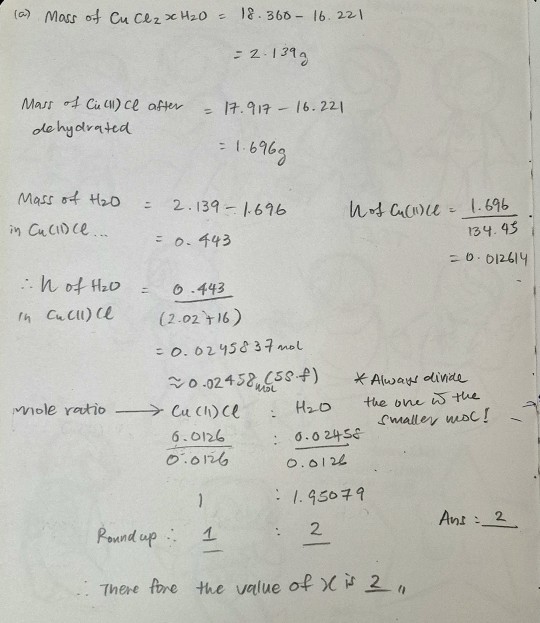 (a) Mass of CuCl2 x H2O = 18.360 - 16.221
= 2.139g
Mass of Cu(II)Cl after = 17.917 - 16.221
dehydrated
= 1.696g
Mass of H2O = 2.139 - 1.696
in Cu(II)Cl... = 0.443
n of Cu(II)Cl = 1.696
134.45
= 0.012614
∴ n of H2O = 0.443
in Cu(II)Cl (2.02 + 16)
= 0.0245837 mol
≈ 0.02458 mol (5s.f)
* Always divide
the one w the
smaller mol!
mole ratio → Cu(II)Cl : H2O
0.0126 : 0.02458
0.0126 0.0126
1 : 1.95079
Round up ∴ 1 : 2
Ans : 2
∴ There fore the value of x is 2 "